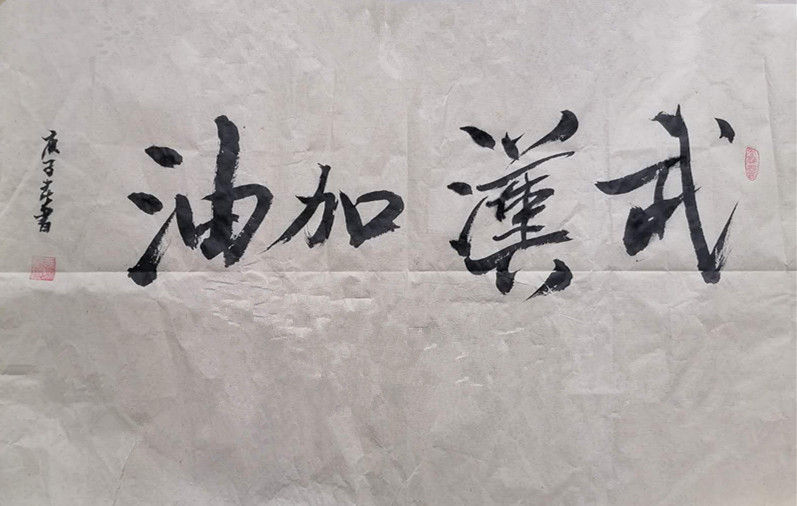 武漢加油
庚子春書